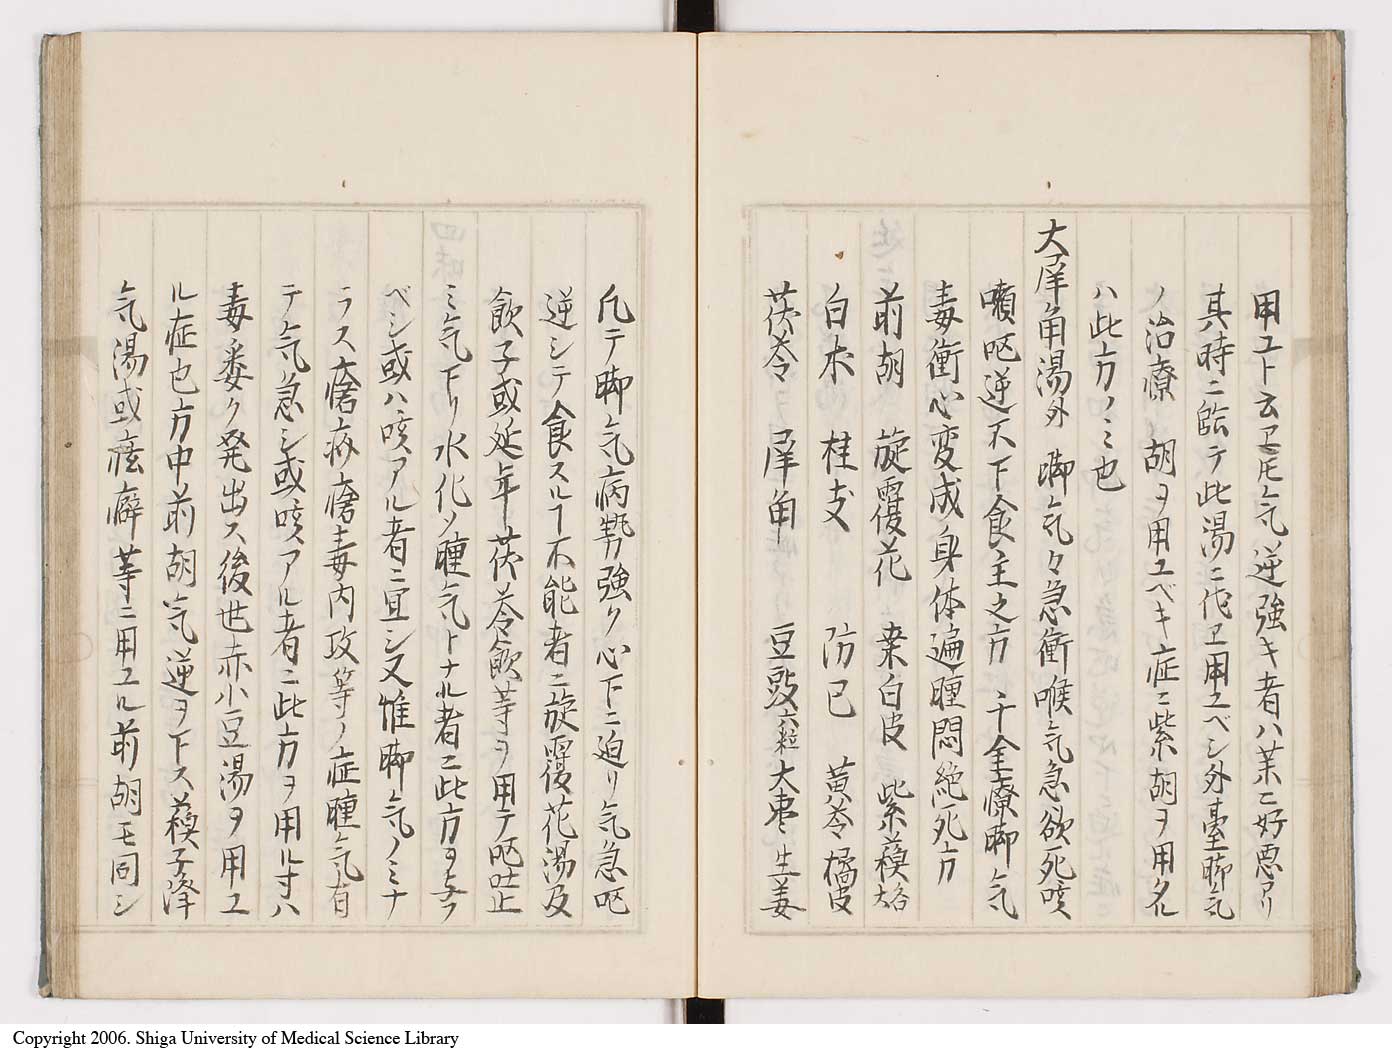 用ユト云𪜈気逆強キ者ハ茱ニ好悪アリ
其時ニ臨テ此湯ニ代ヱ用ユベシ外臺脚気
ノ治療 胡ヲ用ユベキ症ニ紫胡ヲ用タル
ハ此方ノミ也
大犀角湯外 脚気々急衝喉気急欲死咳
嗽呕逆不下食主之方 千金療脚気
毒衝心変成身体遍腫悶絶死方
前胡 旋覆花 桒白皮 紫蘓
白朮 桂支 防已 黄芩 橘皮
茯苓 犀角 豆豉六粒 大枣 生姜
凡テ脚気病勢強ク心下ニ迫リ気急呕
逆シテ食スルヿ不能者ニ旋覆花湯及
飲子或延年茯苓飲等ヲ用テ呕吐止
ミ気下リ水化ソ腫気トナル者ニ此方ヲ与フ
ベシ或ハ咳アル者ニ宜シ又惟脚気ノミナ
ラス瘡疥瘡毒内攻等ノ症腫気有
テ気急シ或咳アル者ニ此方ヲ用ル寸ハ
毒悉ク発出ス後世赤小豆湯ヲ用ユ
ル症也方中前胡気逆ヲ下ス蘓子降
気湯或痃癖等ニ用ユル前胡モ同シ
Copyright 2006. Shiga University of Medical Science Library